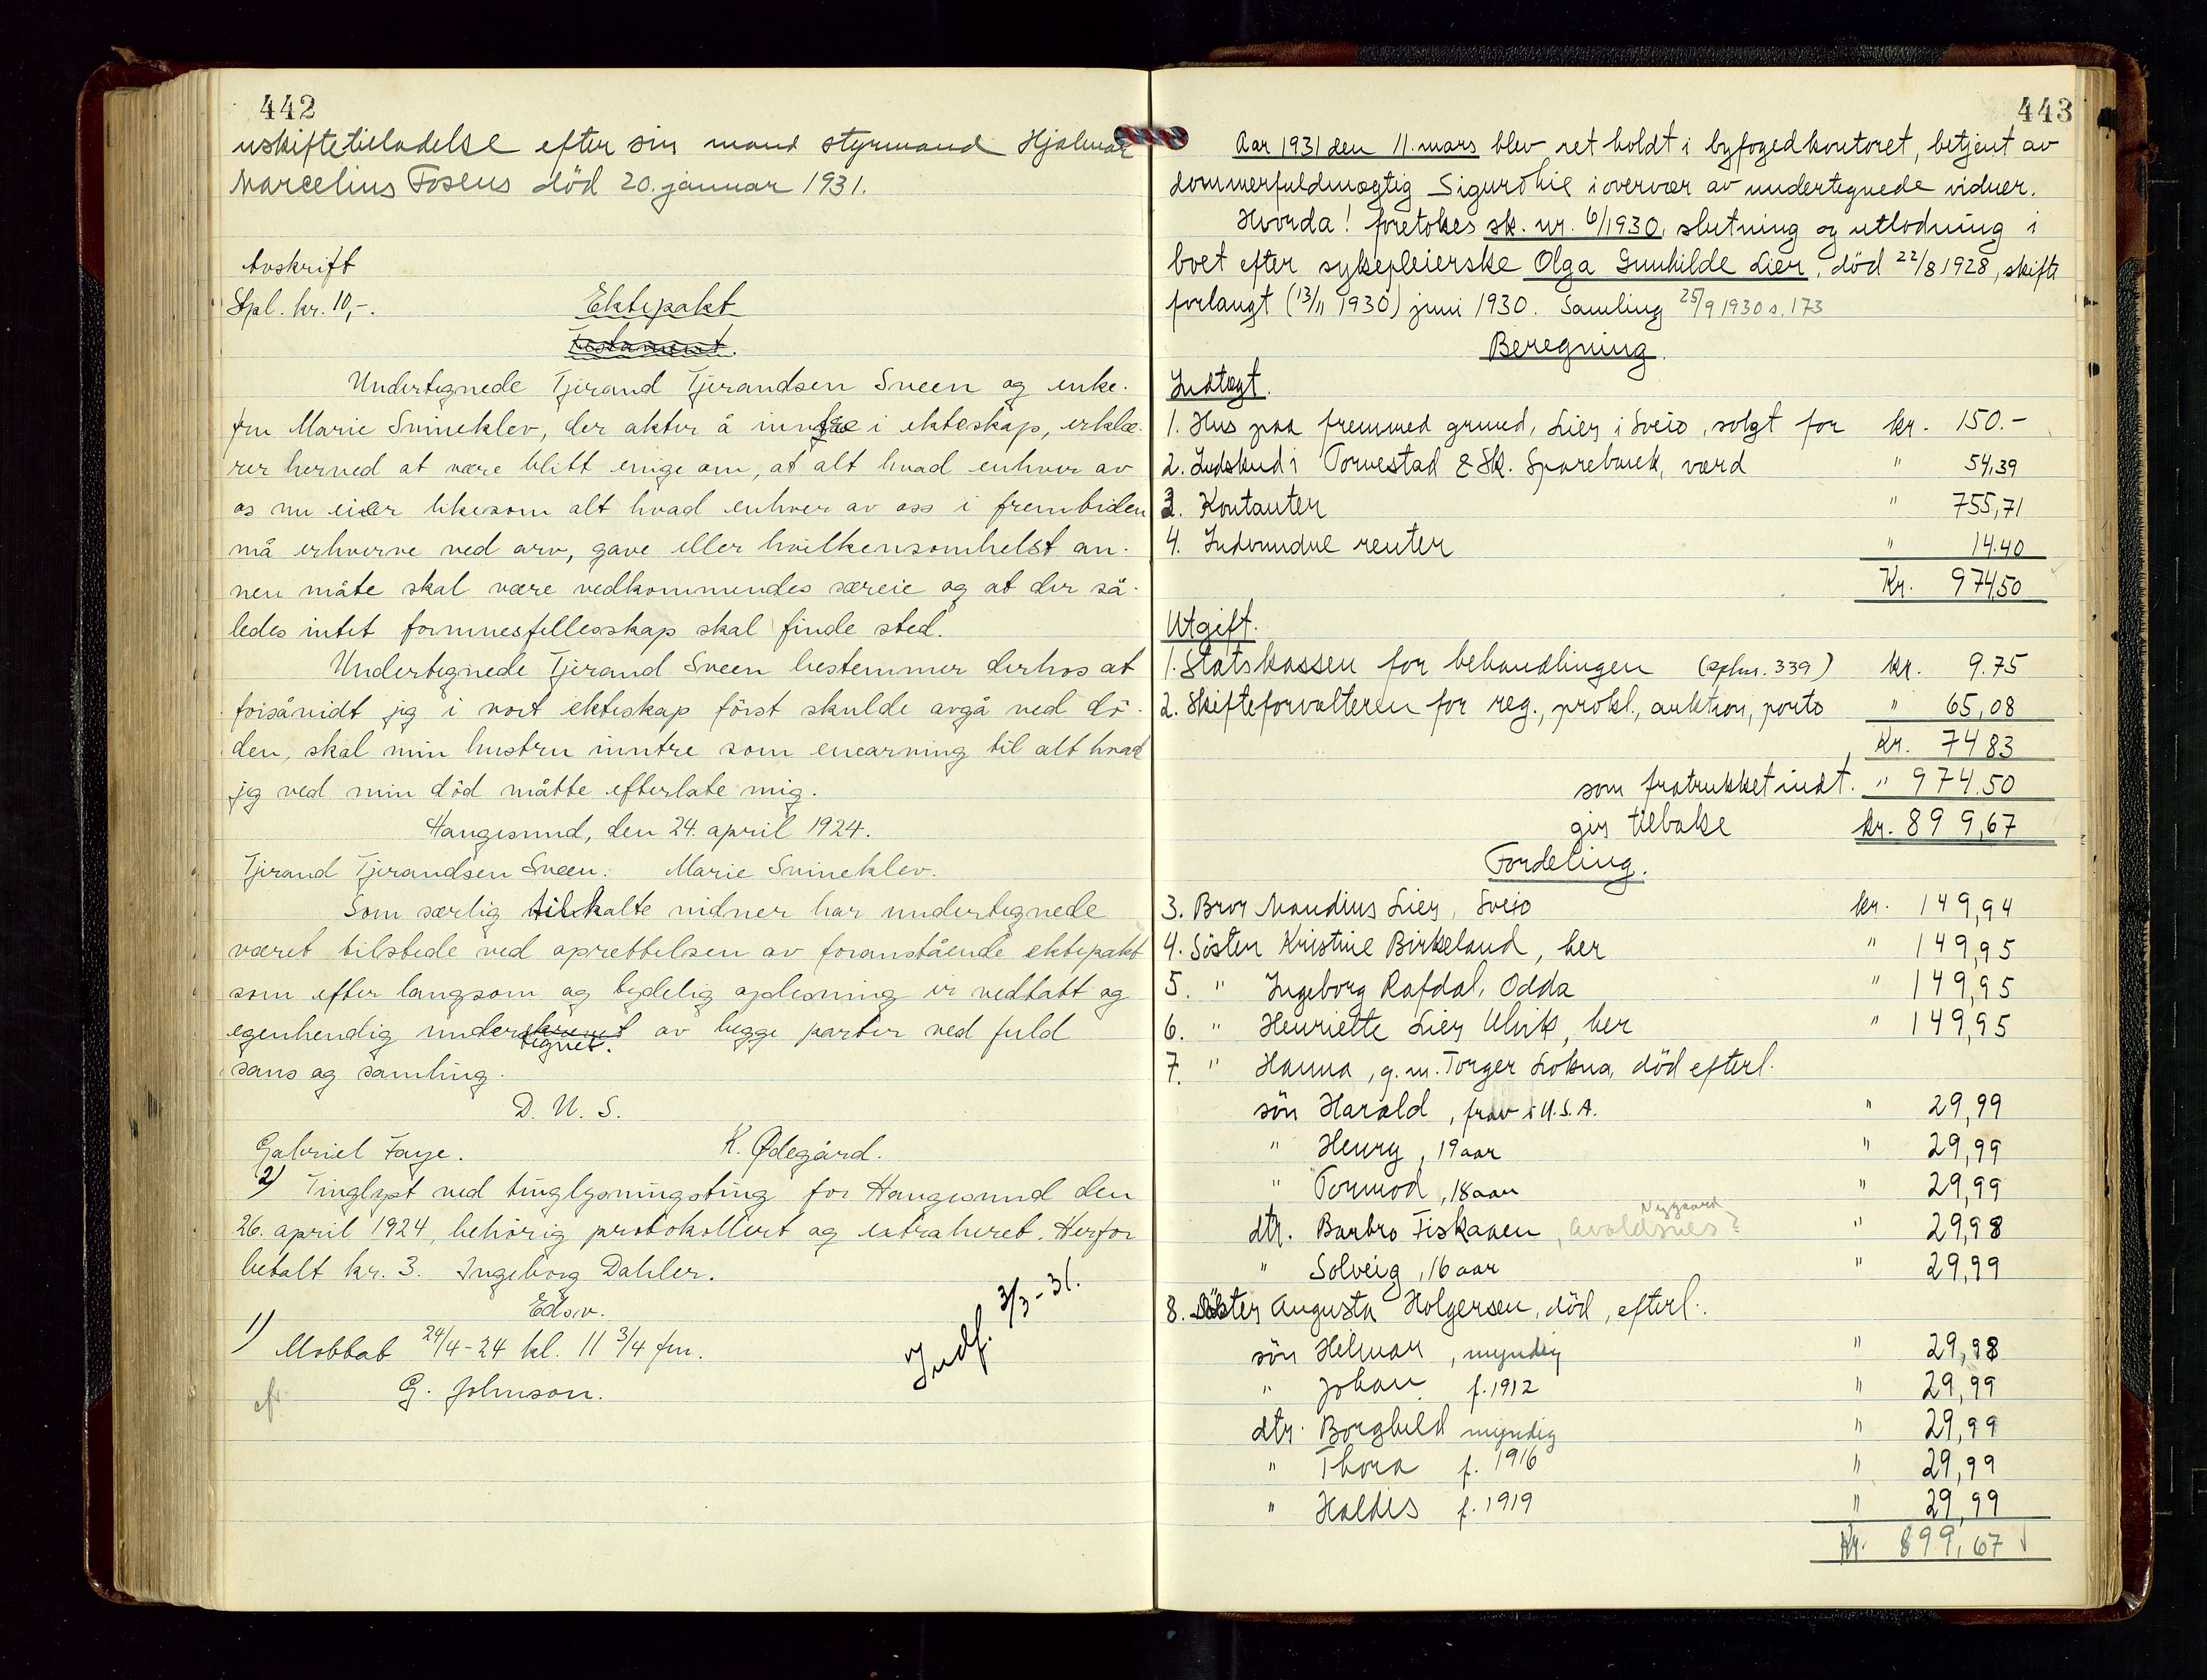 442
uskiftetilladelse efter sin mand styrmand Hjalmar
Marcelius Fosens död 20. januar 1931.
Avskrift
Stpl. kr. 10,-.
Ektepakt
Testament.
Undertegnede Tjerand Tjerandsen Sveen og enke-
fru Marie Svineklev, der akter å inngåe i ekteskap, erklæ-
rer herved at være blitt enige om, at alt hvad enhver av
os nu eier likesom alt hvad enhver av oss i fremtiden
må erhverve ved arv, gave eller hvilkensomhelst an-
nen måte skal være vedkommendes særeie og at der så-
ledes intet formuesfellesskap skal finde sted.
Undertegnede Tjerand Sveen bestemmer derhos at
forsåvidt jeg i vort ekteskap först skulde avgå ved dö-
den, skal min hustru inntre som enearving til alt hvad
jeg ved min död måtte efterlate mig.
Haugesund, den 24. april 1924.
Tjerand Tjerandsen Sveen. Marie Svineklev.
Som særlig tilkalte vidner har undertegnede
været tilstede ved oprettelsen av foranstående ektepakt
som efter langsom og tydelig oplesning er vedtatt og
egenhendig underskrevet av begge parter ved fuld
tegnet.
sans og samling.
D. U. S.
Gabriel Faye. K. Ødegård.
2) Tinglyst ved tinglysningsting for Haugesund den
26. april 1924, behörig protokollert og extraheret. Herfor
betalt kr. 3. Ingeborg Dahler.
Edsv.
1) Mottat 24/4-24 kl. 11 3/4 fm.
G. Johnson.
Indf. 3/3-31.
443
Aar 1931 den 11. mars blev ret holdt i byfogedkontoret, betjent av
dommerfuldmægtig Sigurd Lie i overvær av undertegnede vidner.
Hvorda! foretokes sk. nr. 6/1930, slutning og utlodning i
boet efter sykepleierske Olga Gunhilde Lier, död 22/8 1928, skifte
forlangt (13/11 1930) juni 1930. Samling 25/9 1930 s. 173
Beregning.
Indtægt.
1. Hus paa fremmed grund, Lier i Sveio, solgt for kr. 150.-
2. Indskud i Torvestad & Sk. Sparebank, værd " 54,39
3. Kontanter " 755,71
4. Indvundne renter " 14.40
Kr. 974,50
Utgift.
1. Statskassen for behandlingen (339) kr. 9.75
2. Skifteforvalteren for reg., prokl., auktion, porto " 65,08
Kr. 74 83
som fratrukket indt. " 974.50
gir tilbake kr. 899,67
Fordeling.
3. Bror Maudius Lier, Sveio kr. 149,94
4. Söster Kristine Birkeland, her " 149,95
5. " Ingeborg Rafdal, Odda " 149,95
6. " Henriette Lier Ulvik, her " 149,95
7. " Hanna, g. m. Torger Lokna, död efterl.
sön Harald, frav i U.S.A. " 29,99
" Henry, 19 aar " 29,99
" Tormod, 18 aar " 29,99
Nygaard
dtr. Barbro Fiskaaen, Avaldsnes? " 29,98
" Solveig, 16 aar " 29,99
8. Söster Augusta Holgersen, död, efterl.
sön Helmar, myndig " 29,98
" Johan f. 1912 " 29,99
dtr. Borghild myndig " 29,99
" Thora f. 1916 " 29,99
" Haldis f. 1919 " 29,99
Kr. 899,67